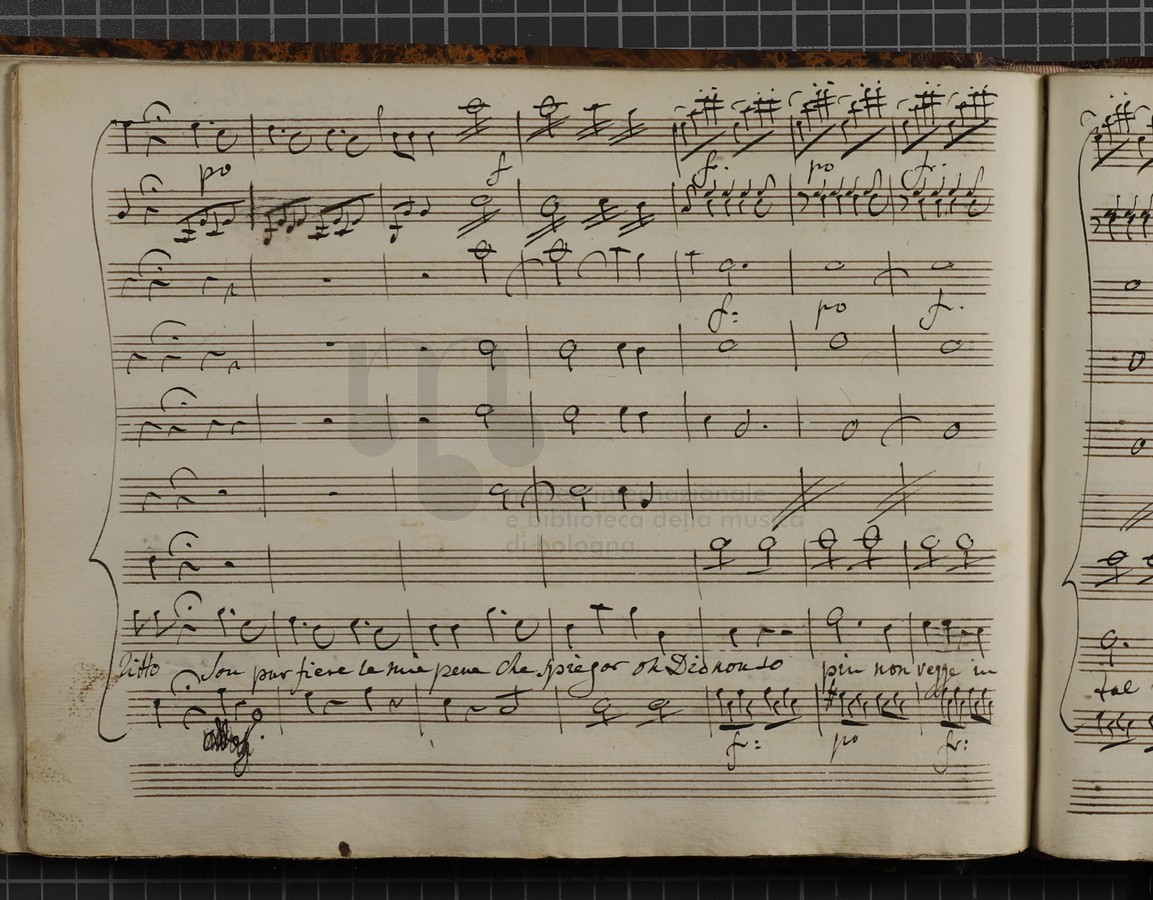 po f f: po f:
f: po f:
museo internazionale
e biblioteca della musica
di bologna
litto Son pur fiere le mie pene che spiegar oh Dio non so piu non vegge in
tal
f: po f: